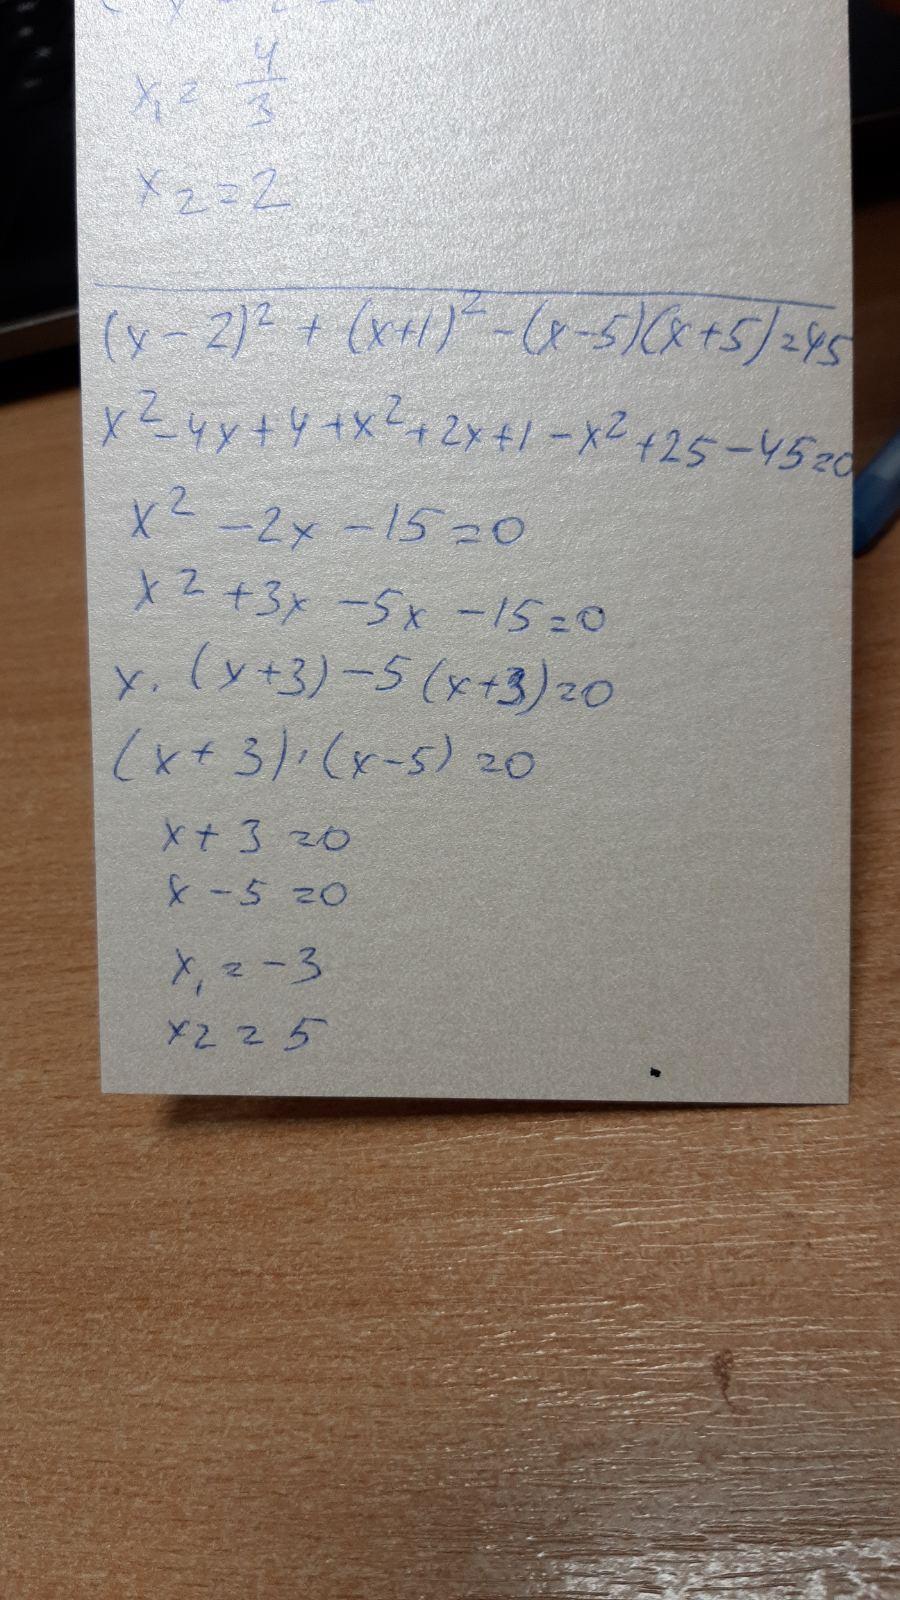 x₁ = 4/3
x₂ = 2
(x - 2)² + (x+1)² - (x-5)(x+5) = 45
x² - 4x + 4 + x² + 2x + 1 - x² + 25 - 45 = 0
x² - 2x - 15 = 0
x² + 3x - 5x - 15 = 0
x · (x+3) - 5 (x+3) = 0
(x + 3) · (x - 5) = 0
x + 3 = 0
x - 5 = 0
x₁ = -3
x₂ = 5